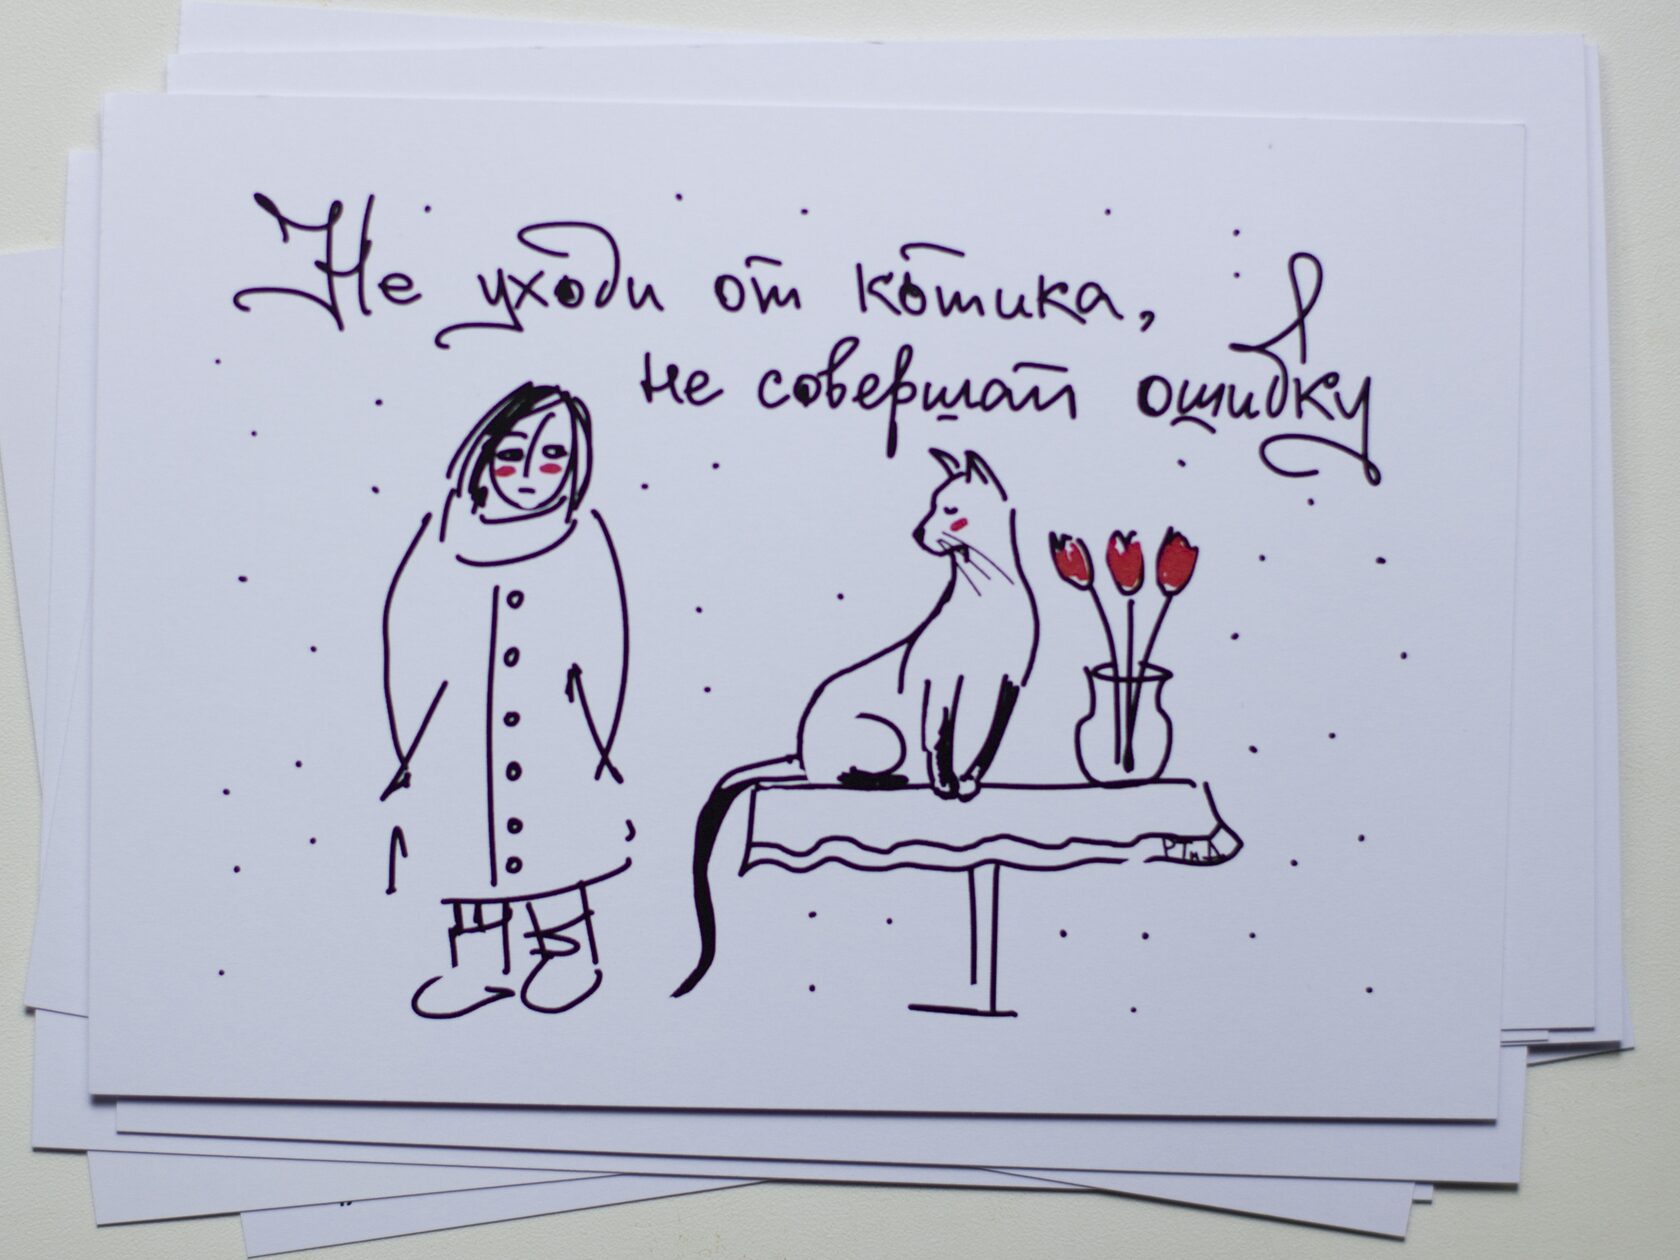 Не уходи от котика,
не совершай ошибку